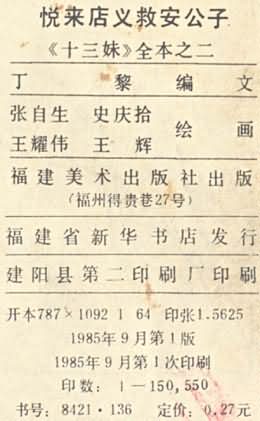 悦来店义救安公子
《十三妹》全本之二
丁黎编文
张自生 史庆拾
绘画
王耀伟 王辉
福建美术出版社出版
(福州得贵巷27号)
福建省新华书店发行
建阳县第二印刷厂印刷
开本787×1092 1 64 印张1.5625
1985年9月第1版
1985年9月第1次印刷
印数：1—150,550
书号：8421·136 定价：0.27元